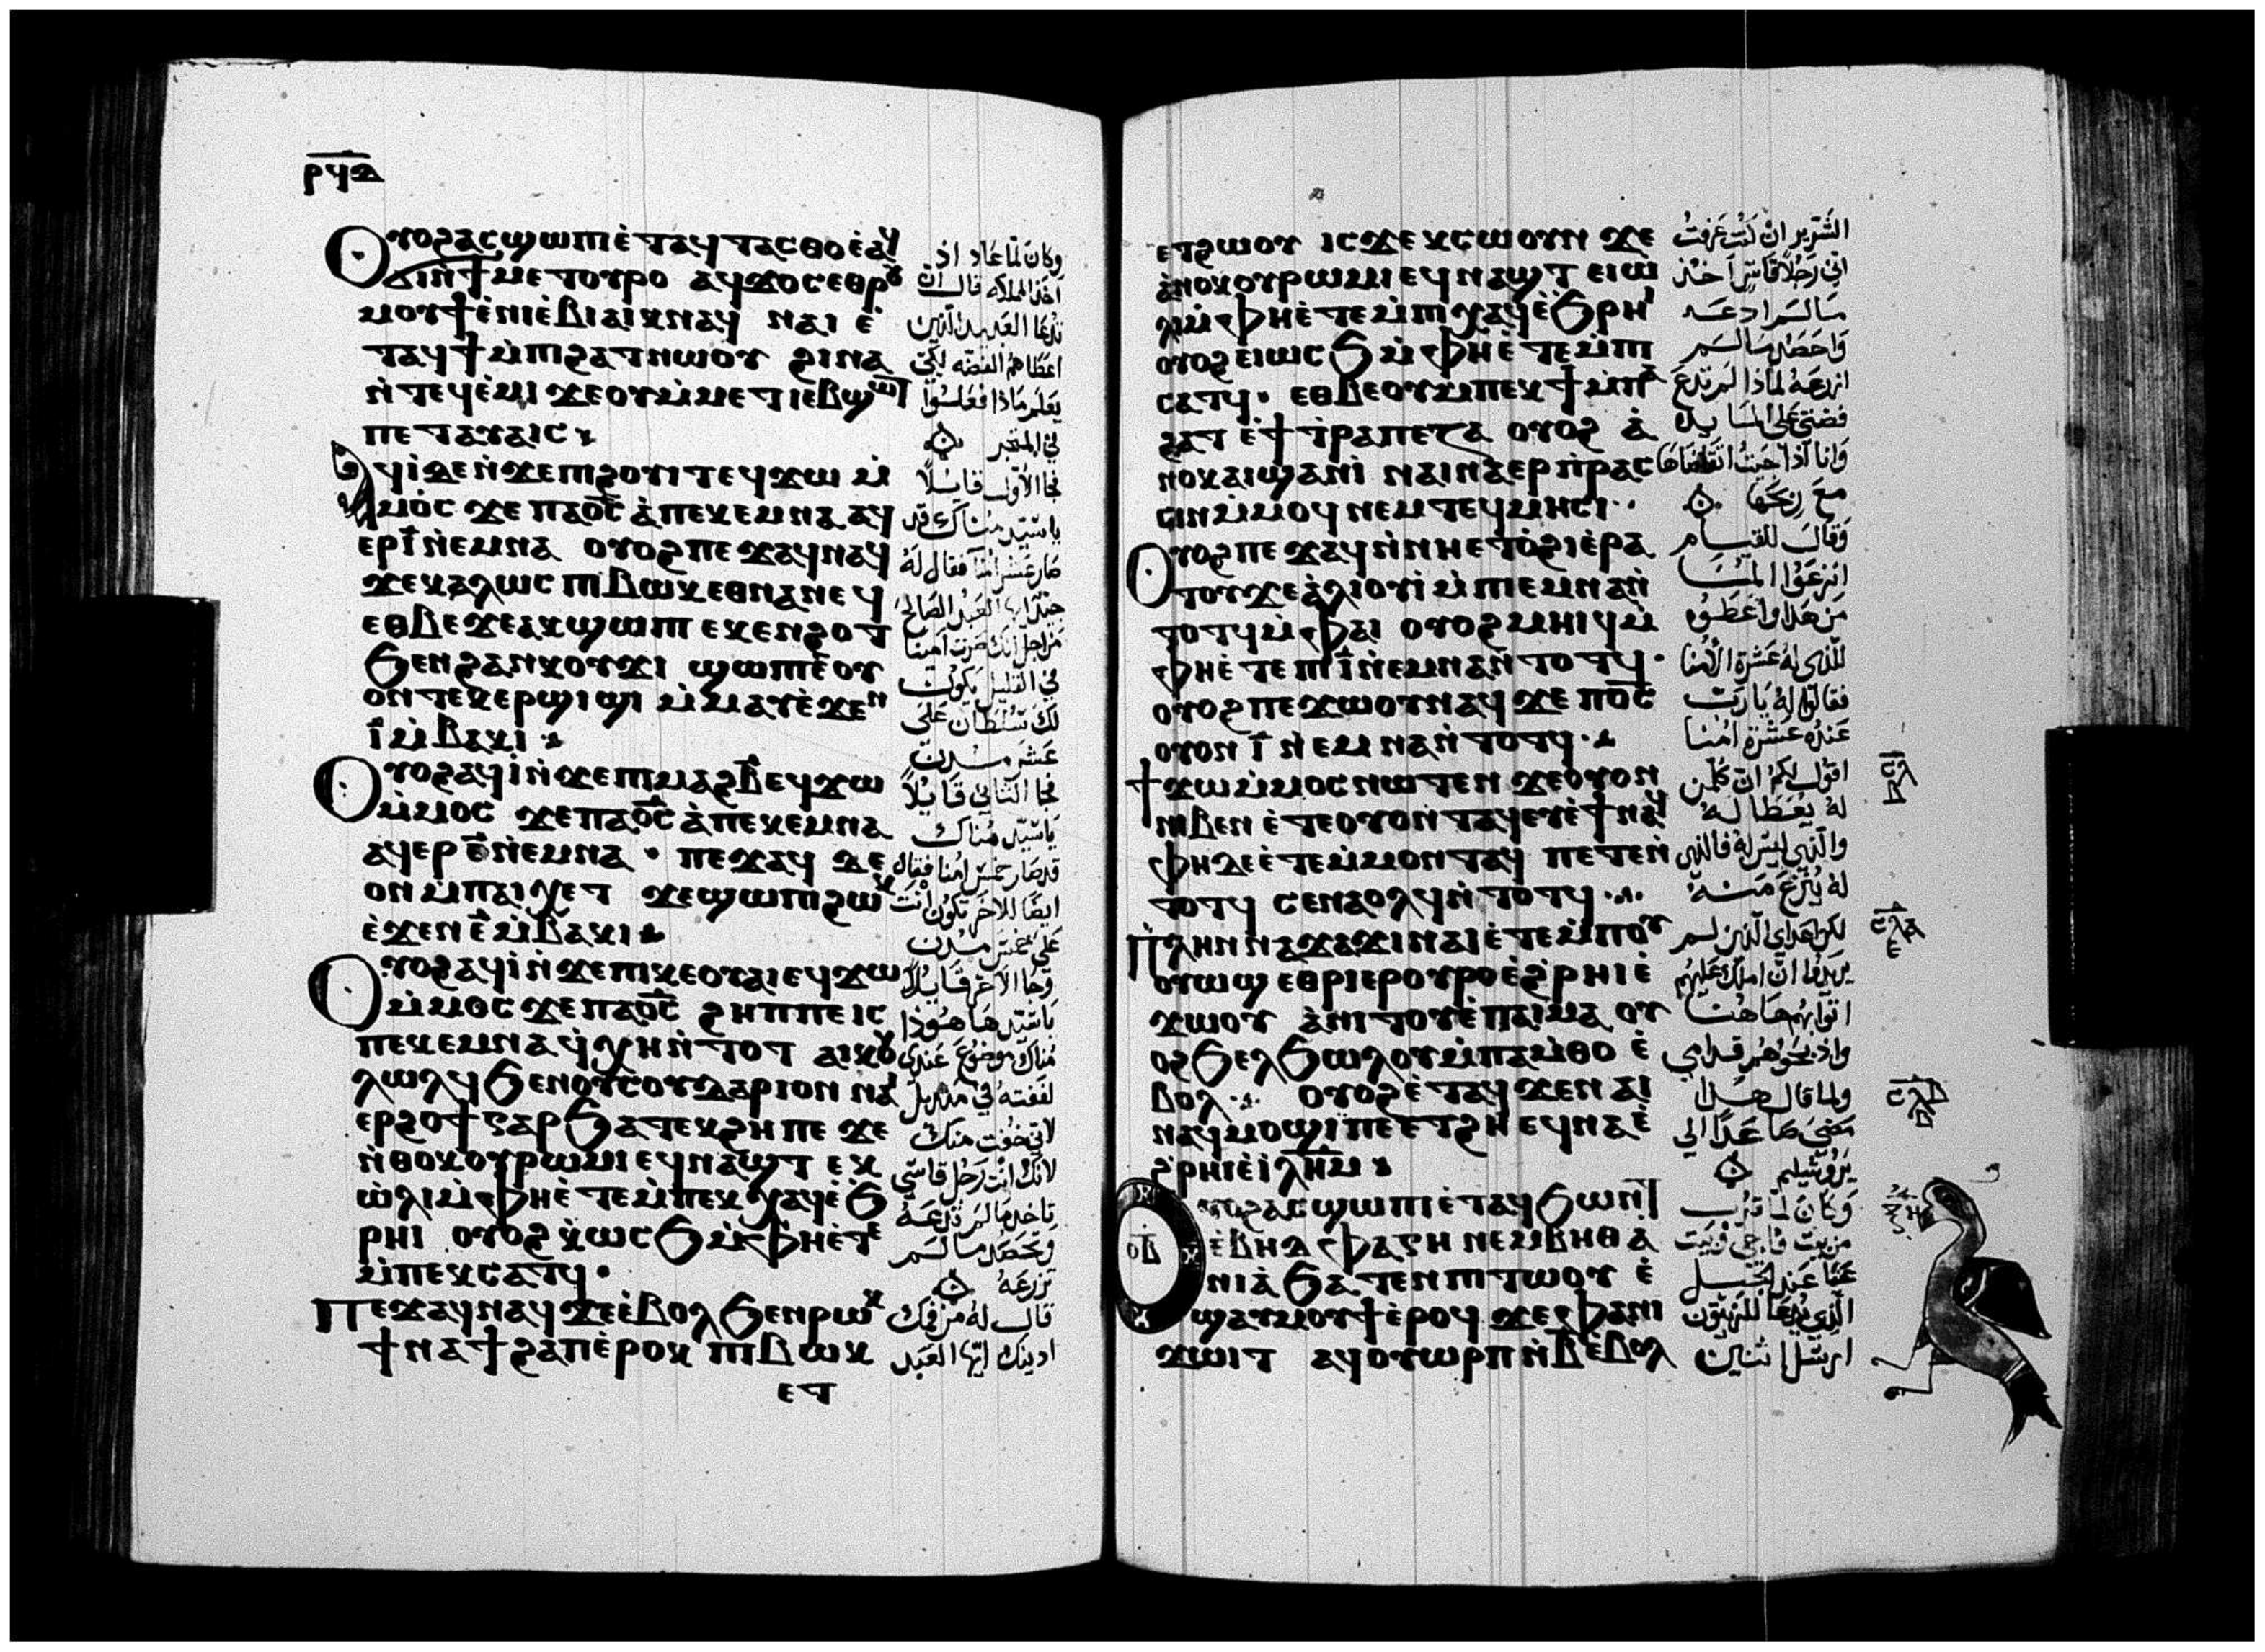 ⲣϥⲇ
Ⲟⲩⲟϩⲁⲥϣⲱⲡⲓ ⲉ̀ⲧⲁϥⲧⲁⲥⲑⲟ ⲉ̀ⲁϥ
ϭⲓⲛ̀ϯⲙⲉⲧⲟⲩⲣⲟ ⲁϥϫⲟⲥ ⲉⲑⲣⲟⲩ
ⲙⲟⲩϯ ⲉ̀ⲛⲓⲉ̀ⲃⲓⲁⲓⲕ ⲛⲁϥ ⲛⲁⲓ ⲉ̀
ⲧⲁϥϯ ⲙ̀ⲡⲓϩⲁⲧ ⲛⲱⲟⲩ ϩⲓⲛⲁ
ⲛ̀ⲧⲉϥⲉ̀ⲙⲓ ϫⲉⲟⲩⲙ̀ⲙⲉⲧⲓⲉⲃϣⲱⲧ
ⲡⲉⲧⲁⲩⲁⲓⲥ
Ⲁϥⲓ̀ ⲇⲉ ⲛ̀ϫⲉⲡⲓϩⲟⲩⲓⲧ ⲉϥϫⲱ ⲙ̀
ⲙⲟⲥ ϫⲉ ⲡⲁⲟ̅ⲥ̅ ⲁ̀ⲡⲉⲕⲉⲙⲛⲁ ⲁϥ
ⲉⲣⲓ̅ ⲛ̀ⲉⲙⲛⲁ ⲟⲩⲟϩ ⲡⲉϫⲁϥ ⲛⲁϥ
ϫⲉⲕⲁⲗⲱⲥ ⲡⲓⲃⲱⲕ ⲉⲑⲛⲁⲛⲉϥ
ⲉⲑⲃⲉϫⲉⲁⲕϣⲱⲡⲓ ⲉⲕⲉⲛϩⲟⲧ
ϧⲉⲛϩⲁⲛⲕⲟⲩϫⲓ ϣⲱⲡⲓ ⲉ̀ⲟⲩ
ⲟⲛⲧⲉⲕⲉⲣϣⲓϣⲓ ⲙ̀ⲙⲁⲩ ⲉ̀ϫⲉⲛ
ⲓ̅ ⲙ̀ⲃⲁⲕⲓ
Ⲟⲩⲟϩⲁϥⲓ̀ ⲛ̀ϫⲉⲡⲓⲙⲁϩⲃ̅ ⲉϥϫⲱ
ⲙ̀ⲙⲟⲥ ϫⲉⲡⲁⲟ̅ⲥ̅ ⲁ̀ⲡⲉⲕⲉⲙⲛⲁ
ⲁϥⲉⲣ ⲉ̅ ⲛ̀ⲉⲙⲛⲁ · ⲡⲉϫⲁϥ ⲇⲉ
ⲟⲛ ⲙ̀ⲡⲁⲓⲭⲉⲧ ϫⲉϣⲱⲡⲓ ϩⲱⲕ
ⲉ̀ϫⲉⲛ ⲉ̅ ⲙ̀ⲃⲁⲕⲓ
Ⲟⲩⲟϩⲁϥⲓ̀ ⲛ̀ϫⲉⲡⲓⲕⲉⲟⲩⲁⲓ ⲉϥϫⲱ
ⲙ̀ⲙⲟⲥ ϫⲉⲡⲁⲟ̅ⲥ̅ ϩⲏⲡⲡⲉ ⲓⲥ
ⲡⲉⲕⲉⲙⲛⲁ ϥ̀ⲭⲏ ⲛ̀ⲧⲟⲧ ⲁⲓⲕⲟⲩ
ⲗⲱⲗϥ ϧⲉⲛⲟⲩⲥⲟⲩⲇⲁⲣⲓⲟⲛ ⲛⲁⲓ
ⲉⲣϩⲟϯ ⲅⲁⲣ ϧⲁⲧⲉⲕϩⲏ ⲡⲉ ϫⲉ
ⲛ̀ⲑⲟⲕ ⲟⲩⲣⲱⲙⲓ ⲉϥⲛⲁϣⲧ ⲉⲕ
ⲱ̀ⲗⲓ ⲙ̀ⲫⲏⲉ̀ⲧⲉⲙ̀ⲡⲉⲕⲭⲁϥ ⲉ̀ϧ
ⲣⲏⲓ ⲟⲩⲟϩ ⲭ̀ⲱⲥϧ ⲙ̀ⲫⲏⲉ̀ⲧⲉ
ⲙ̀ⲡⲉⲕⲥⲁⲧϥ ·
Ⲡⲉϫⲁϥ ⲛⲁϥ ϫⲉⲉ̀ⲃⲟⲗ ϧⲉⲛⲣⲱⲕ
ϯⲛⲁϯϩⲁⲡ ⲉ̀ⲣⲟⲕ ⲡⲓⲃⲱⲕ
ⲉⲧ
وكان لما عاد اذ
اخذ المملكه قال ان
تدعا العبيد الذين
اعطاهم الفضه لكي
يعلم ماذا فعلوا
في المتجر
فجا الاول قايلا
يا سيد مناك قد
صار عشر امنا فقال له
جيدا ايها العبد الصالح
من اجل انك صرت امينا
في القليل يكون
لك سلطان على
عشر مدن
فجا الثاني قايلا
يا سيد مناك
قد صار خمس امنا فقال
ايضا للاخر تكون انت
على خمس مدن
وجا الاخر قايلا
يا سيد ها هوذا
مناك موضوع عندي
لففته في منديل
لاني خفت منك
لانك انت رجل قاسي
تاخذ ما لم تدعه
وتحصد ما لم
تزرعه
قال له من فمك
ادينك ايها العبد
ⲉⲧϩⲱⲟⲩ ⲓⲥϫⲉ ⲕⲥⲱⲟⲩⲛ ϫⲉ
ⲁ̀ⲛⲟⲕ ⲟⲩⲣⲱⲙⲓ ⲉϥⲛⲁϣⲧ ⲉⲓⲱ
ⲗⲓ ⲙ̀ⲫⲏⲉ̀ⲧⲉⲙ̀ⲡⲓⲭⲁϥ ⲉ̀ϧⲣⲏⲓ
ⲟⲩⲟϩ ⲉⲓⲱⲥϧ ⲙ̀ⲫⲏⲉ̀ⲧⲉⲙ̀ⲡⲓ
ⲥⲁⲧϥ · ⲉⲑⲃⲉⲟⲩ ⲙ̀ⲡⲉⲕϯ ⲙ̀ⲡⲁ
ϩⲁⲧ ⲉ̀ϯⲧ̀ⲣⲁⲡⲉⲍⲁ ⲟⲩⲟϩ ⲁ̀
ⲛⲟⲕ ⲁⲓϣⲁⲛⲓ̀ ⲛⲁⲓⲛⲁⲉⲣⲡ̀ⲣⲁⲥ
ⲥⲓⲛ ⲙ̀ⲙⲟϥ ⲛⲉⲙ ⲧⲉϥⲙ̀ⲏⲥⲓ
Ⲟⲩⲟϩ ⲡⲉϫⲁϥ ⲛ̀ⲛⲏ ⲉⲧⲟ̀ϩⲓ ⲉ̀ⲣⲁ
ⲧⲟⲩ ϫⲉ ⲁ̀ⲗⲓⲟⲩⲓ̀ ⲙ̀ⲡⲓⲉⲙⲛⲁ ⲛ̀
ⲧⲟⲧϥ ⲙ̀ⲫⲁⲓ ⲟⲩⲟϩ ⲙⲏⲓϥ ⲙ̀
ⲫⲏⲉ̀ⲧⲉ ⲡⲓ ⲓ̅ ⲛ̀ⲉⲙⲛⲁ ⲛ̀ⲧⲟⲧϥ ·
ⲟⲩⲟϩ ⲡⲉϫⲱⲟⲩ ⲛⲁϥ ϫⲉ ⲡⲟ̅ⲥ̅
ⲟⲩⲟⲛ ⲓ̅ ⲛ̀ⲉⲙⲛⲁ ⲛ̀ⲧⲟⲧϥ
ϯϫⲱ ⲙ̀ⲙⲟⲥ ⲛⲱⲧⲉⲛ ϫⲉⲟⲩⲟⲛ
ⲛⲓⲃⲉⲛ ⲉ̀ⲧⲉⲟⲩⲟⲛⲧⲁϥ ⲉⲩⲉ̀ϯ ⲛⲁϥ
ⲫⲏ ⲇⲉ ⲉ̀ⲧⲉⲙ̀ⲙⲟⲛⲧⲁϥ ⲡⲉⲧⲉⲛ
ⲧⲟⲧϥ ⲥⲉⲛⲁⲟⲗϥ ⲛ̀ⲧⲟⲧϥ
Ⲡ̀ⲗⲏⲛ ⲛⲁϫⲁϫⲓ ⲛⲁⲓ ⲉ̀ⲧⲉⲙ̀ⲡⲟⲩ
ⲟⲩⲱϣ ⲉⲑⲣⲓⲉⲣⲟⲩⲣⲟ ⲉ̀ϩ̀ⲣⲏⲓ ⲉ̀
ϫⲱⲟⲩ ⲁ̀ⲛⲓⲧⲟⲩ ⲉ̀ⲡⲁⲓⲙⲁ ⲟⲩ
ⲟϩ ϧⲉⲗϧⲱⲗⲟⲩ ⲙ̀ⲡⲁⲙ̀ⲑⲟ ⲉ̀
ⲃⲟⲗ ⲟⲩⲟϩ ⲉ̀ⲧⲁϥϫⲉⲛⲁⲓ
ⲛⲁϥⲙⲟϣⲓ ⲡⲉ ⲉⲧϩⲏ ⲉϥⲛⲁ ⲉ̀
ϩ̀ⲣⲏⲓ ⲉ̀ⲓ̀ⲗ̅ⲏ̅ⲙ̅
ⲟⲃ
Ⲟⲩⲟϩⲁⲥϣⲱⲡⲓ ⲉ̀ⲧⲁϥϧⲱⲛⲧ
ⲉ̀ⲃⲏⲑⲫⲁⲅⲏ ⲛⲉⲙ ⲃⲏⲑⲁ̀
ⲛⲓⲁ̀ ϧⲁⲧⲉⲛ ⲡⲓⲧⲱⲟⲩ ⲉ̀
ϣⲁⲩⲙⲟⲩϯ ⲉ̀ⲣⲟϥ ϫⲉ ⲫⲁⲛⲓ
ϫⲱⲓⲧ ⲁϥⲟⲩⲱⲣⲡ ⲛ̀ⲃ̅ ⲉ̀ⲃⲟⲗ
الشرير ان كنت عرفت
اني رجلا قاسي اخذ
ما لم ادعه
واحصد ما لم
ازرعه لماذا لم تدع
فضتي على المايده
وانا اذا جيت اتقاضاها
مع ربحها
وقال للقيام
انزعوا المنا
من هذا واعطوه
للذي له عشرة الامنا
فقالوا له يا رب
عنده عشرة امنا
اقول لكم ان كل من
له يعطا له
والذي ليس له فالذي
له ينزع منه
لكن اعداي الذين لم
يريدوا ان املك عليهم
اتوا بهم ها هنا
واذبحوهم قدامي
ولما قال هذا
مضى صاعدا الي
يروشليم
وكان لما قرب
من بيت فاجي وبيت
عنيا عند الجبل
الذي يدعا للزيتون
ارسل اثنين
ⲥⲗ
ⲃ
ⲥⲗⲁ
ⲉ
ⲥⲗⲃ
ⲃ